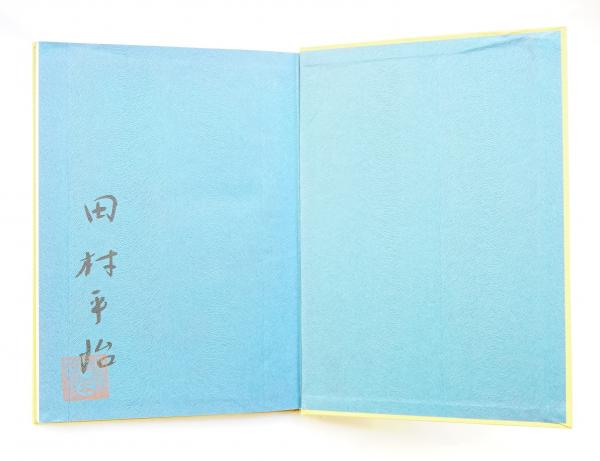 田村平治